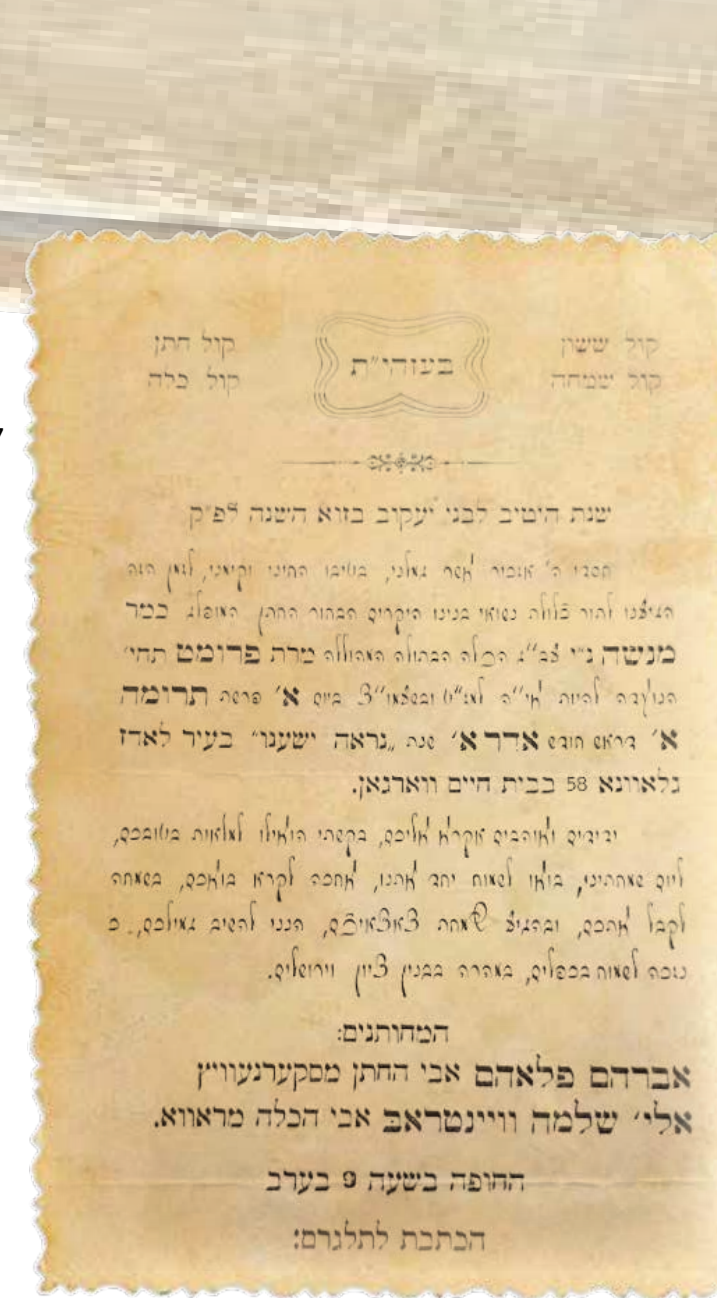 קול ששון
קול שמחה
בעזהי״ת
קול חתן
קול כלה
שנת היטיב לבני יעקיב בזוא השנה לפ״ק
חסדי ה׳ אזכיר אשר גמלני, בטובו החינו וקימני, לזמן הזה
הגיענו לתור כלולת נשואי בנינו היקרים הבחור החתן המופלג כמר
מנשה נ״י עב״ג הכלה הבתולה המהוללה מרת פרומט תחי׳
הנועדה להיות אי״ה למז״ט ובשעמו״צ ביום א׳ פרשת תרומה
א׳ דראש חודש אדר א׳ שנת „נראה ישענו״ בעיר לאדז
גלאוונא 58 בבית חיים ווארגאן.
ידידים ואוהבים אקרא אליכם, בקשתי הואילו למלאות בטובכם,
ליום שמחתינו, בואו לשמוח יחד אתנו, אחכה לקרא בואכם, בשמחה
לקבל אתכם, ובהגיע שמחת צאצאיכם, הנני להשיב גמולכם,
נזכה לשמוח בכפלים, במהרה בבנין ציון וירושלים.
המחותנים:
אברהם פלאהם אבי החתן מסקערנעוויץ
אלי׳ שלמה וויינטראב אבי הכלה מראווא.
החופה בשעה 9 בערב
הכתבת לתלגרם: